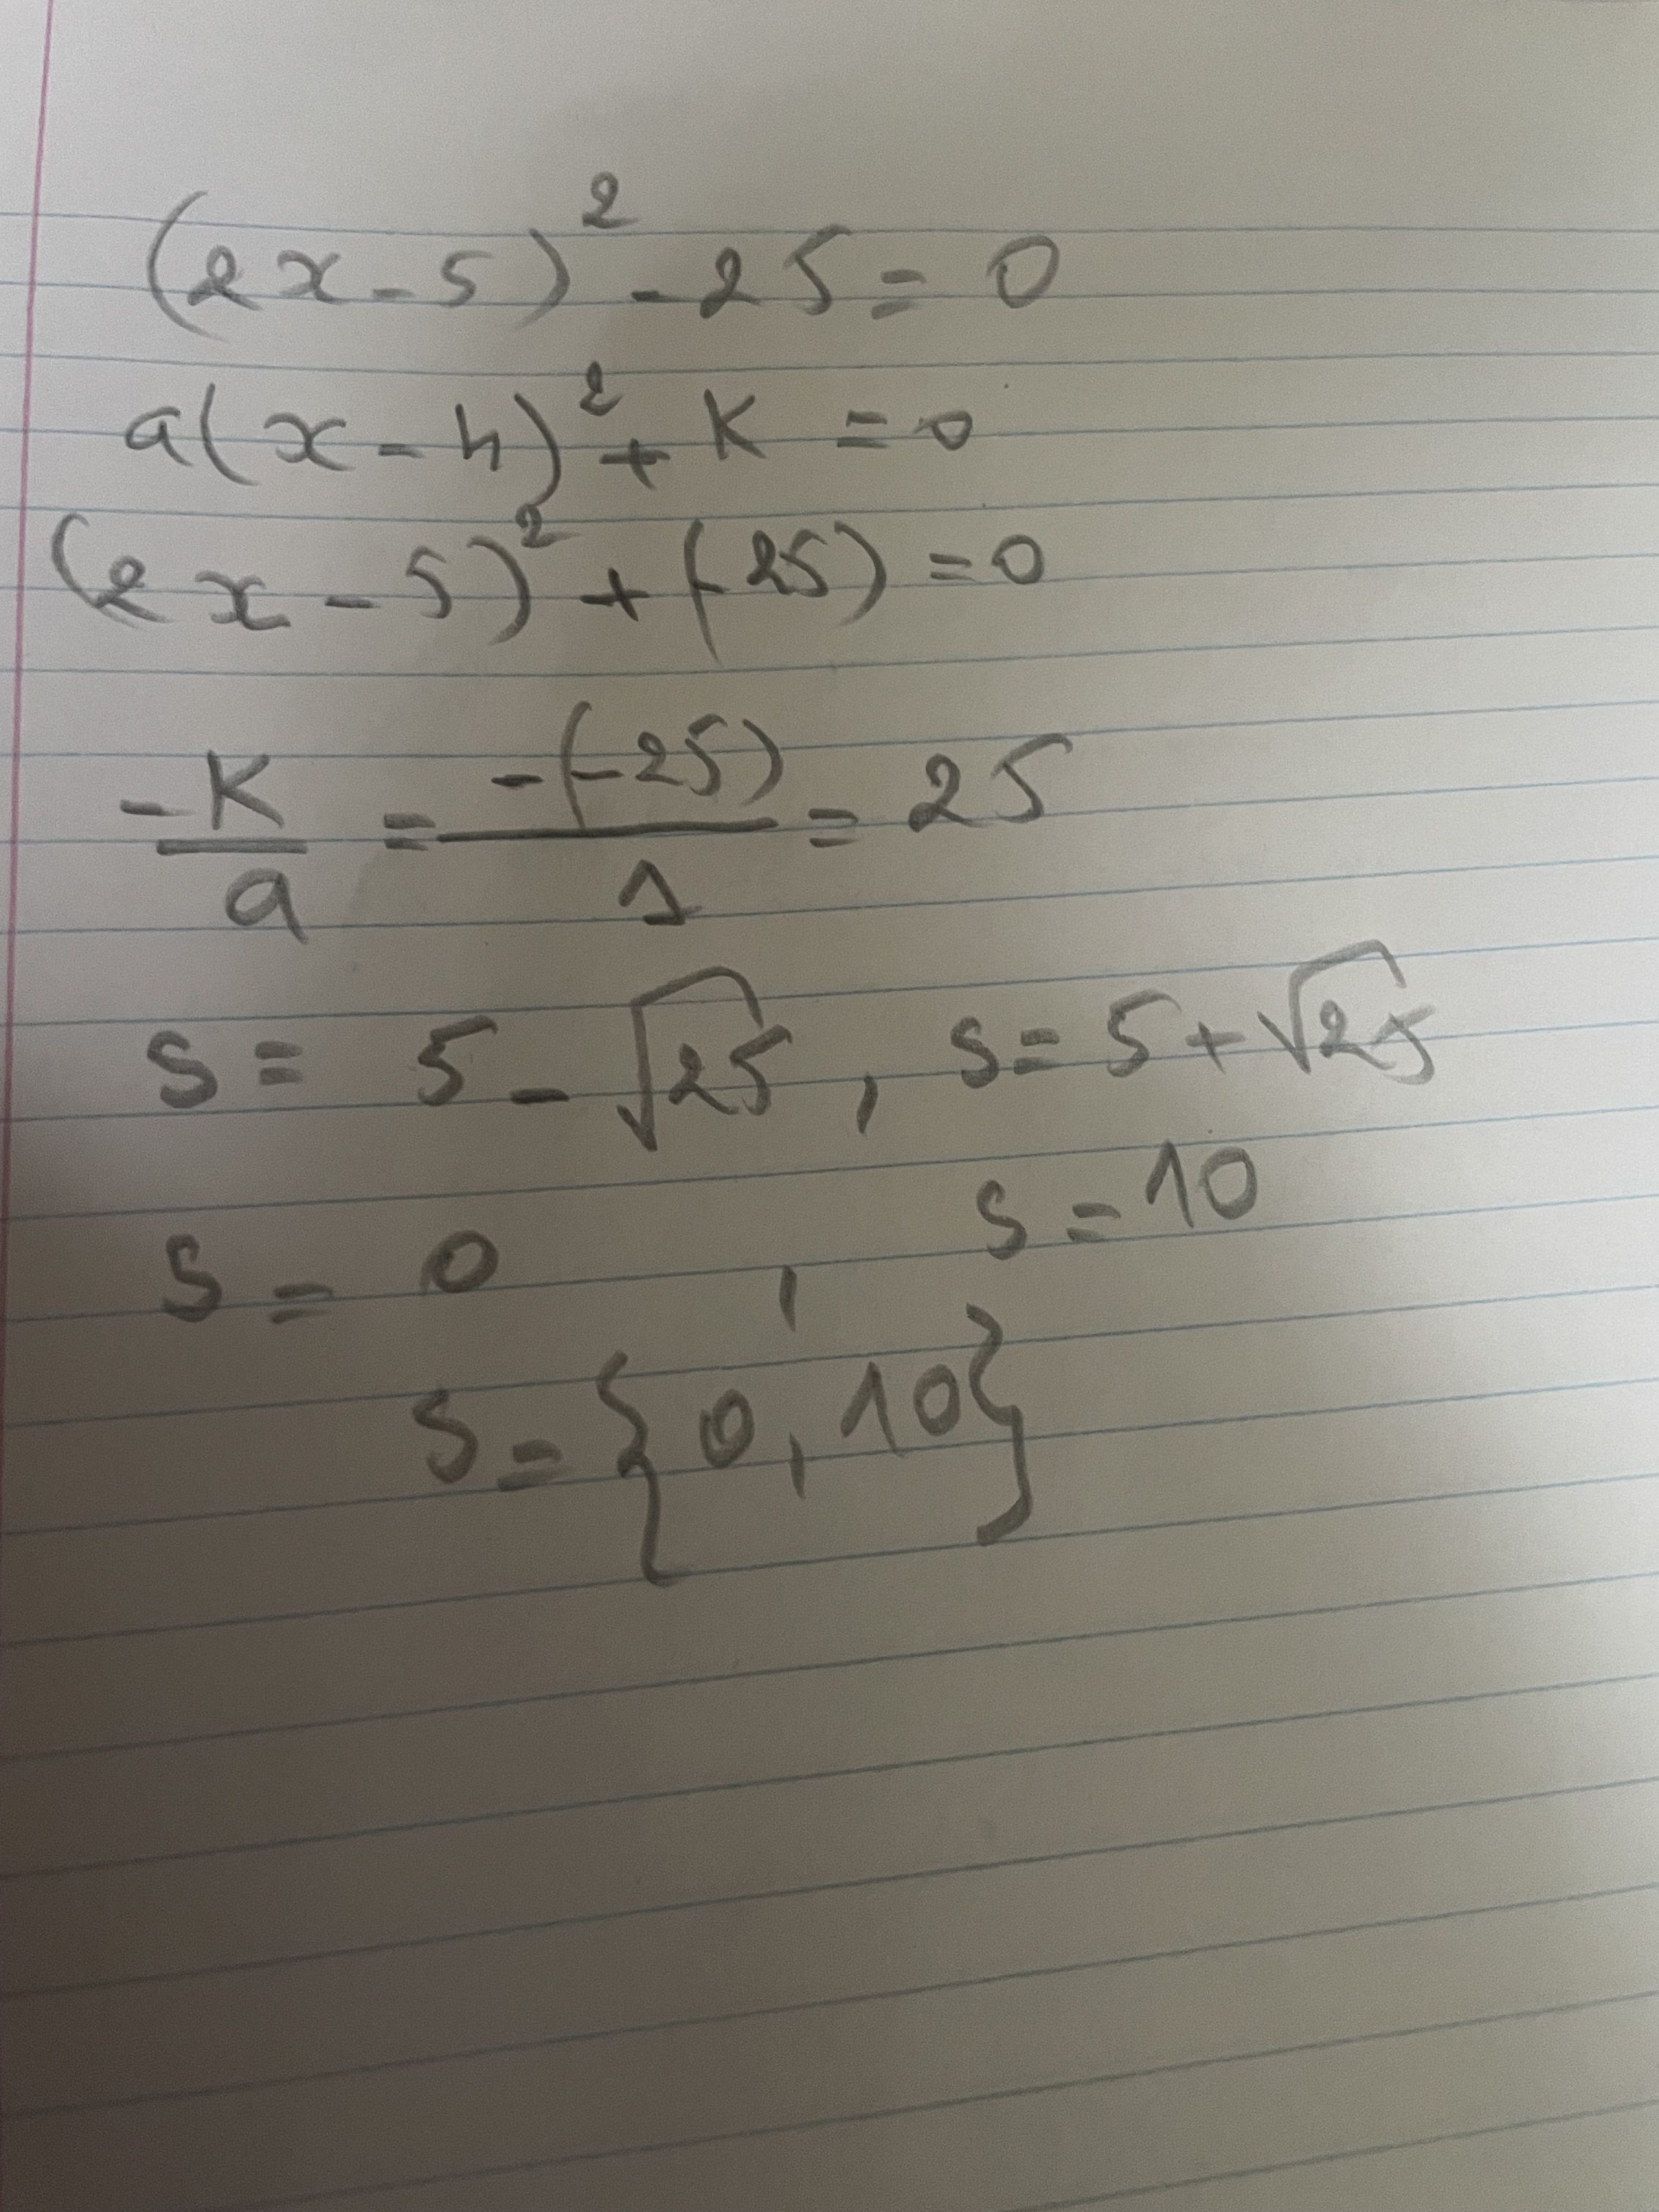 (2x-5)² - 25 = 0
a(x-h)² + K = 0
(2x-5)² + (-25) = 0
-K/a = -(-25)/1 = 25
S = 5 - √25 , S = 5 + √25
S = 0 , S = 10
S = {0, 10}